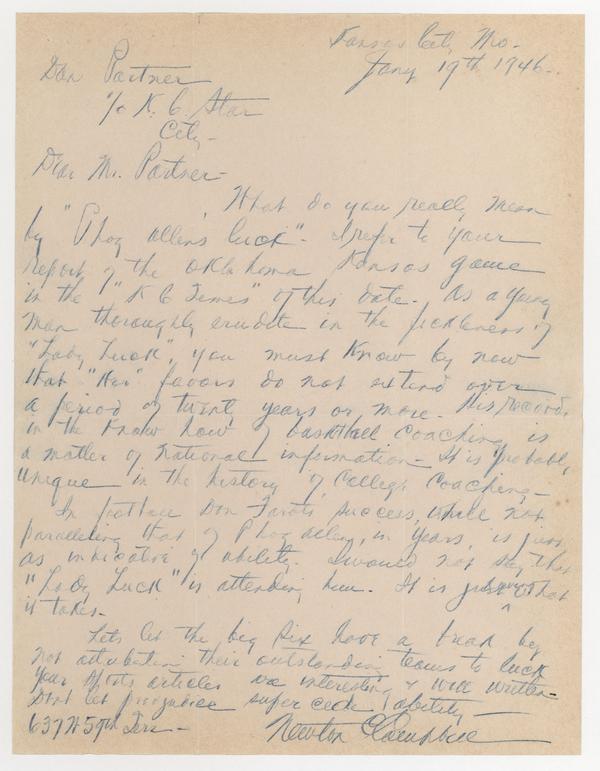 Kansas City, Mo-
Jany 19th 1946-
Dan Partner
c/o K. C. Star
City-
Dear Mr. Partner-
What do you really mean
by "Phog Allens luck"- I refer to your
report of the Oklahoma Kansas game
in the "K C Times" of this date. As a young
man thoroughly erudite in the fickleness of
"Lady Luck", you must know by now
that "Her" favors do not extend over
a period of twenty years or more. His record,
in the know how of basketball coaching is
a matter of National information- It is probably
unique in the history of College Coaching-
In football Don Faurots success, while not
paralleling that of Phog Allen, in years, is just
as indicative of ability. I would not say that
"Lady Luck" is attending him. It is just what
it takes-
Lets let the big six have a break by
not attributing their outstanding teams to luck
Your sports articles are interesting & well written-
Dont let prejudice supercede ability-
637 W 59th Terr-
Newton Campbell